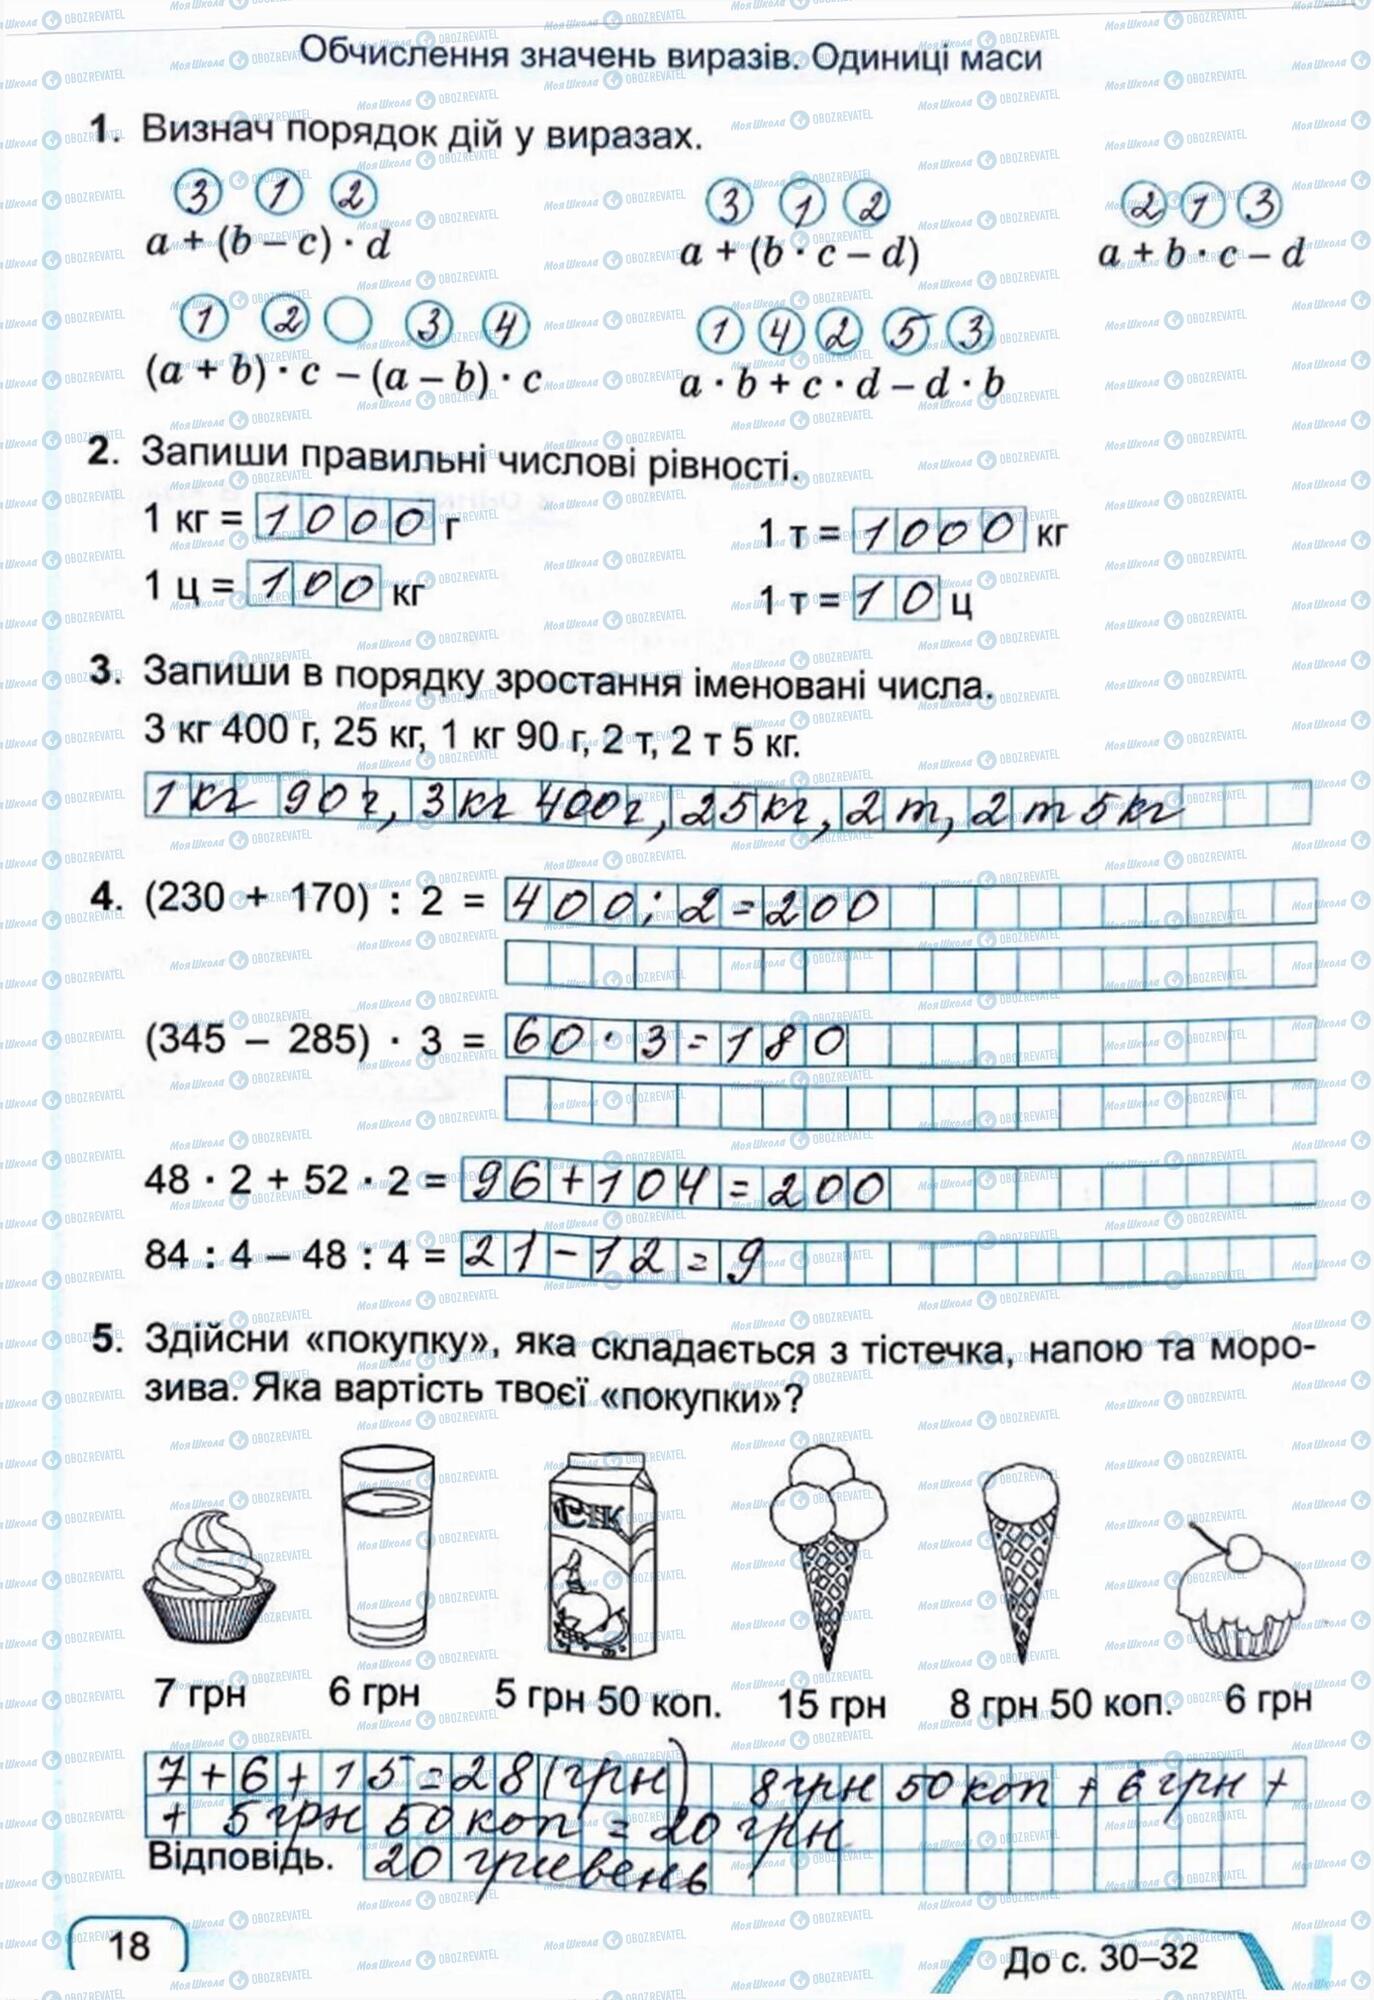 Обчислення значень виразів. Одиниці маси
1. Визнач порядок дій у виразах.
3 1 2 3 1 2 2 1 3
a + (b – c) · d a + (b · c – d) a + b · c – d
1 2 3 4 1 4 2 5 3
(a + b) · c – (a – b) · c a · b + c · d – d · b
2. Запиши правильні числові рівності.
1 кг = 1000 г 1 т = 1000 кг
1 ц = 100 кг 1 т = 10 ц
3. Запиши в порядку зростання іменовані числа.
3 кг 400 г, 25 кг, 1 кг 90 г, 2 т, 2 т 5 кг.
1 кг 90 г, 3 кг 400 г, 25 кг, 2 т, 2 т 5 кг
4. (230 + 170) : 2 = 400 : 2 = 200
(345 – 285) · 3 = 60 · 3 = 180
48 · 2 + 52 · 2 = 96 + 104 = 200
84 : 4 – 48 : 4 = 21 – 12 = 9
5. Здійсни «покупку», яка складається з тістечка, напою та моро-
зива. Яка вартість твоєї «покупки»?
Сік
7 грн 6 грн 5 грн 50 коп. 15 грн 8 грн 50 коп. 6 грн
7 + 6 + 15 = 28 (грн) 8 грн 50 коп + 6 грн +
+ 5 грн 50 коп = 20 грн
Відповідь. 20 гривень
18
До с. 30–32
Моя Школа OBOZREVATEL